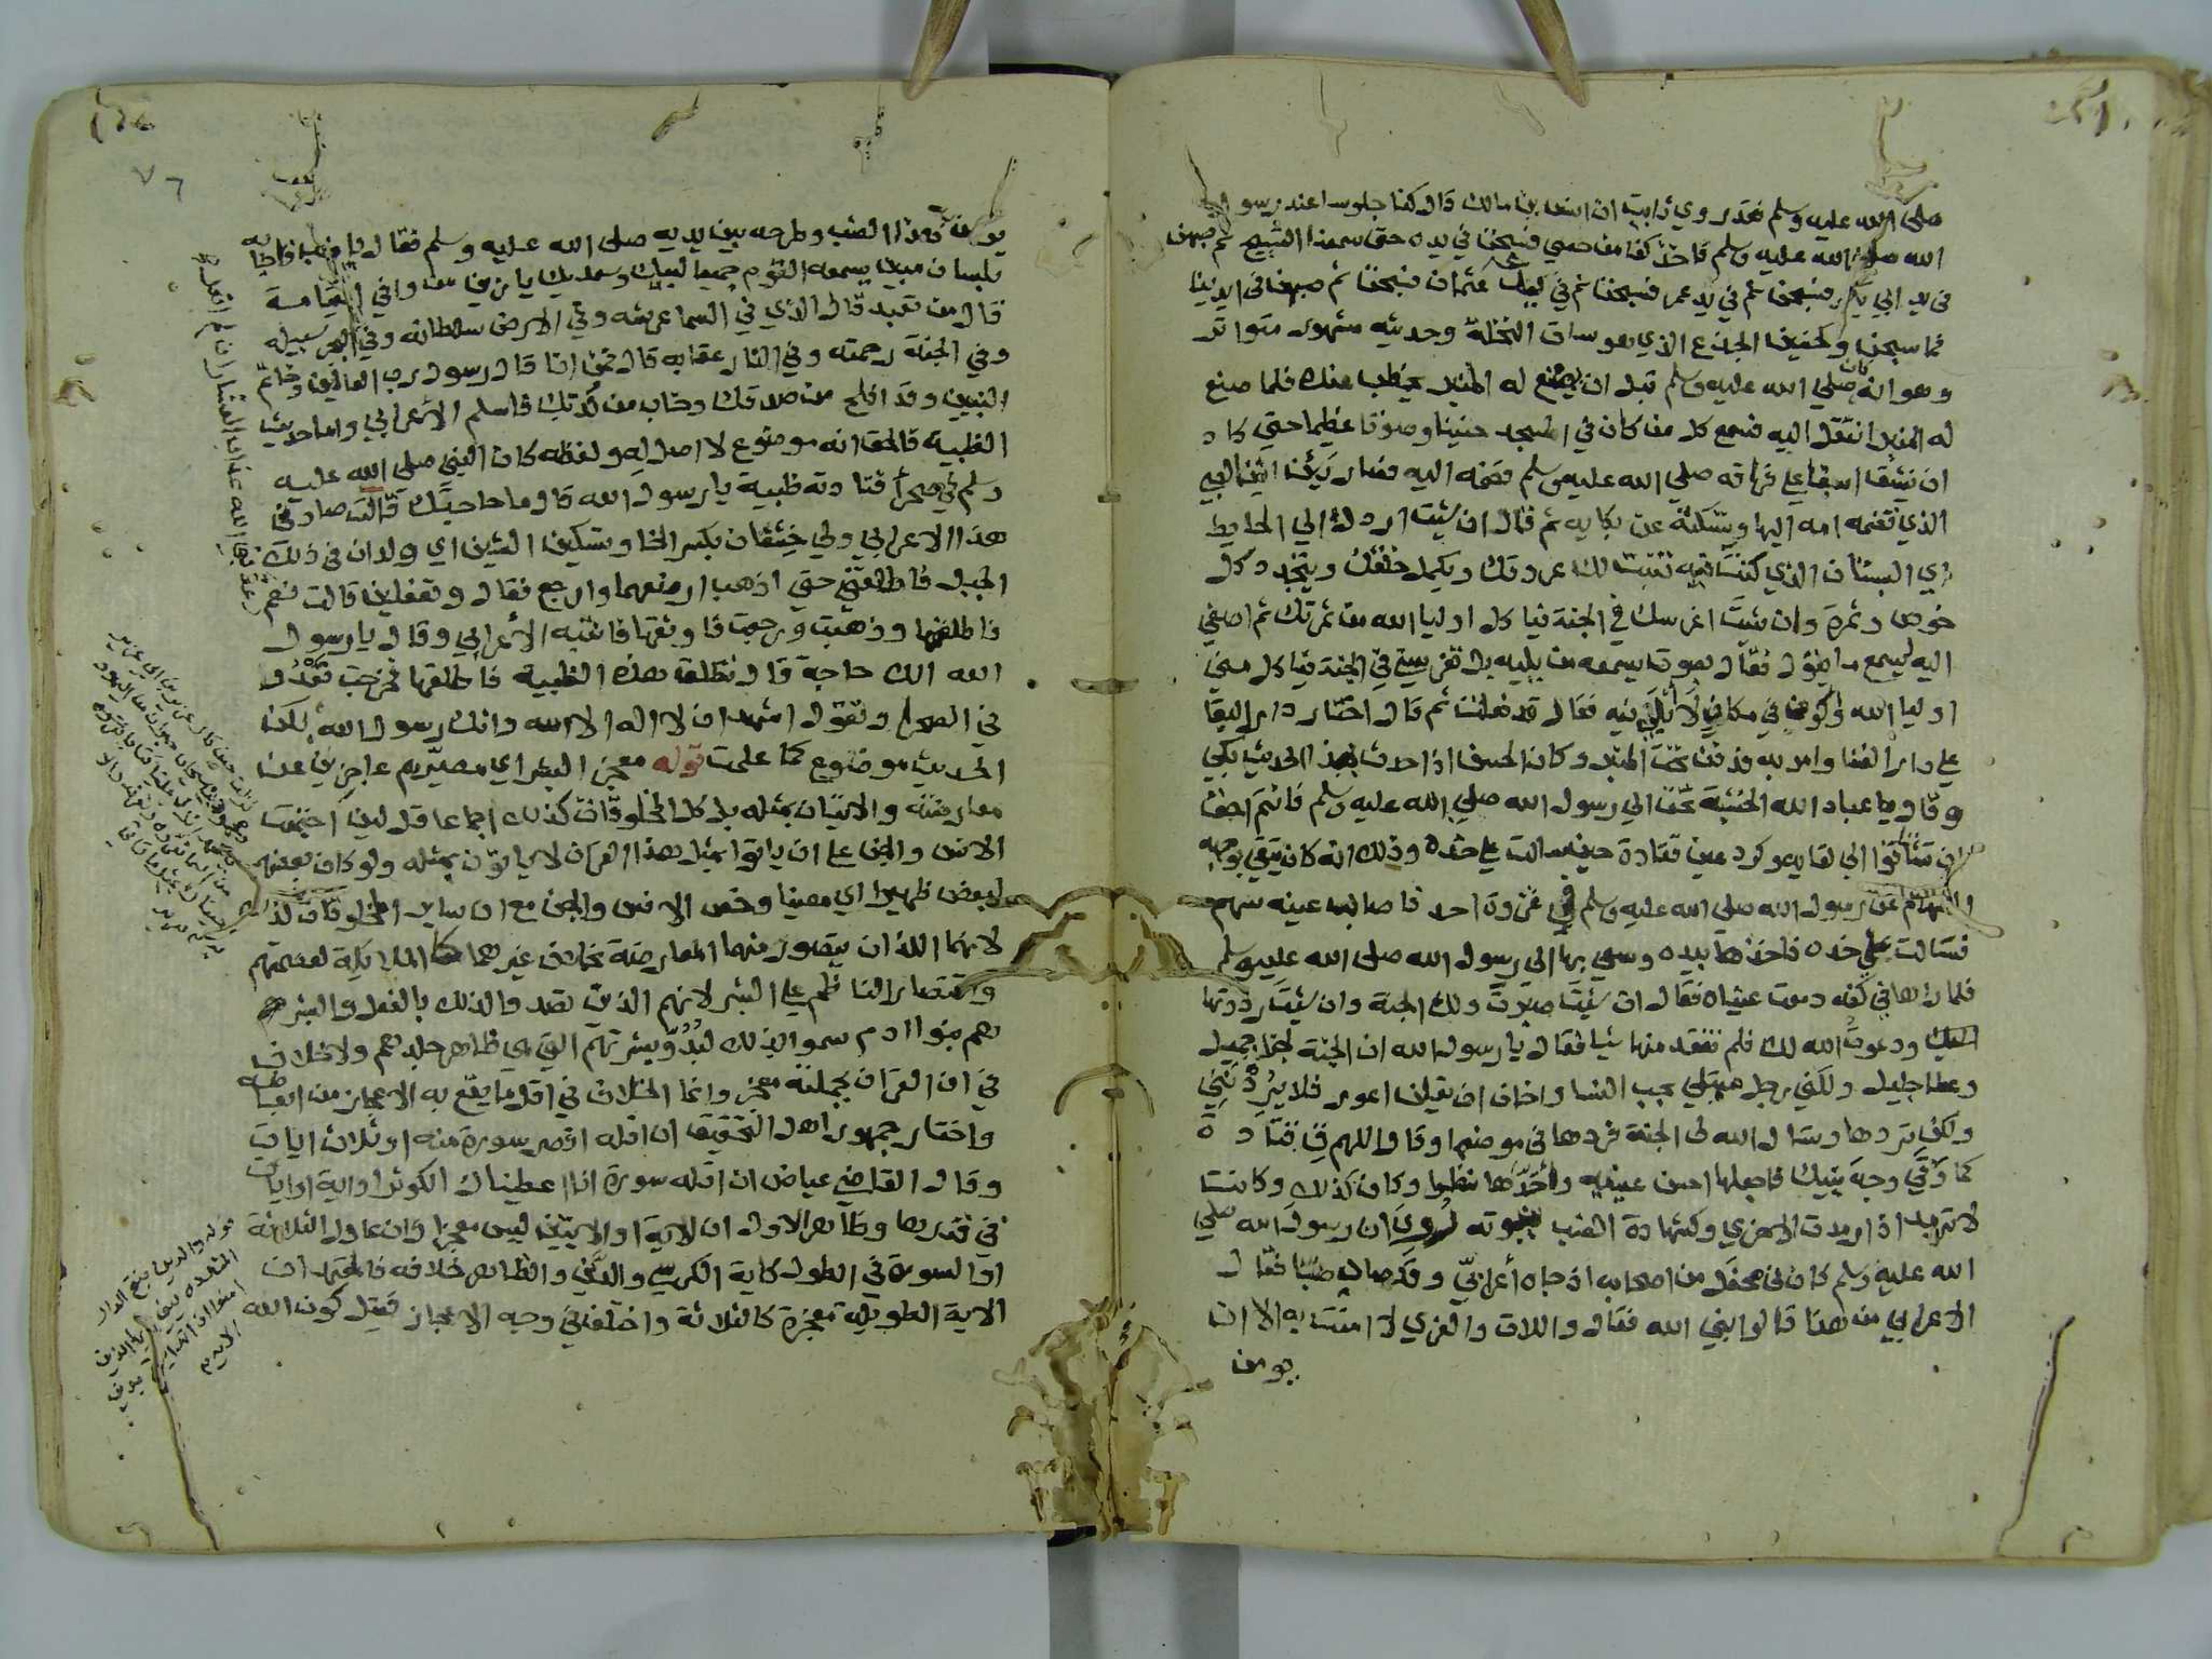 صلى الله عليه وسلم فقد روي ثابت ان انس بن مالك قال كنا جلوسا عند رسول
الله صلى الله عليه وسلم فاخذ كفا من حصي فسبحن في يده حتى سمعنا التسبيح ثم صبهن
في يد ابي بكر فسبحن ثم في يد عمر فسبحن ثم في يد عثمان فسبحن ثم صبهن في ايدينا
فما سبحن وكحنين الجذع الذي هو ساق النخلة وحديثه مشهور متواتر
وهو انه كان صلي الله عليه وسلم قبل ان يصنع له المنبر يخطب عنده فلما صنع
له المنبر انتقل اليه فسمع كل من كان في المسجد حنينا وصوتا عظيما حتي كاد
ان ينشق اسفا علي فراقه صلي الله عليه وسلم فضمه اليه فصار يئن انين الصبي
الذي تضمه امه اليها وتسكنه عن بكايه ثم قال ان شئت اردك الي الحايط
اي البستان الذي كنت فيه تنبت لك عروقك ويكمل خلقك ويتجدد كل
خوص وثمرة وان شئت اغرسك في الجنة فيا كل اوليا الله من ثمرتك ثم اصغي
اليه ليسمع ما يقول فقال بصوت يسمعه من يليه بل تغرسني في الجنة فيا كل مني
اوليا الله واكون في مكان لا ابلي فيه فقال قد فعلت ثم قال اختار دار البقا
علي دار الفنا وامر به فدفن تحت المنبر وكان الحسن اذا حدث بهذا الحديث بكي
وقال يا عباد الله الخشبة تحن الي رسول الله صلي الله عليه وسلم فانتم احق
ان تشتاقوا الي لقايه وكرد عين قتادة حين سالت علي خده وذلك انه كان يتقي بوجهه
السهام عن رسول الله صلي الله عليه وسلم في غزوة احد فاصاب عينه سهم
فسالت علي خده فاخذها بيده وسعي بها الي رسول الله صلى الله عليه وسلم
فلما راها في كفه دمعت عيناه فقال ان شئت صبرت ولك الجنة وان شئت رددتها
اليك ودعوت الله لك فلم تفقد منها شيا فقال يا رسول الله ان الجنة لجزا جميل
وعطا جليل ولكني رجل مبتلي بحب النسا واخاف ان يقلن اعور فلا يردنني
ولكن تردها وتسال الله لي الجنة فردها في موضعها وقال اللهم ق قتادة
كما وقي وجه نبيك فاجعلها احسن عينيه واحدهما نظرا وكان كذلك وكانت
لا ترمد اذا رمدت الاخري وكشهادة الضب بنبوته روي ان رسول الله صلي
الله عليه وسلم كان في محفل من اصحابه اذ جاه أعرابي وقد صاد ضبا فقال
الاعرابي من هذا قالوا نبي الله فقال واللات والعزي لا امنت به الا ان
يومن
يومن هذا الضب وطرحه بين يديه صلى الله عليه وسلم فقال يا ضب فاجابه
بلسان مبين يسمعه القوم جميعا لبيك وسعديك يا زين من وافي القيامة
قال من تعبد قال الذي في السما عرشه وفي الارض سلطانه وفي البحر سبيله
وفي الجنة رحمته وفي النار عقابه قال فمن انا قال رسول رب العالمين وخاتم
النبيين وقد افلح من صدقك وخاب من كذبك فاسلم الأعرابي واما حديث
الظبية فالحق انه موضوع لا اصل له ولفظه كان النبي صلى الله عليه
وسلم في صحرأ فنادته ظبية يا رسول الله قال ما حاجتك قالت صادني
هذا الاعرابي ولي خشفان بكسر الخا وتسكين الشين اي ولدان في ذلك
الجبل فاطلقني حتي اذهب ارضعهما وارجع فقال وتفعلين قالت نعم
فاطلقها وذهبت ورجعت فاوثقها فانتبه الأعرابي وقال يا رسول
الله الك حاجة قال تطلق هذه الظبية فاطلقها فخرجت تعدوا
في الصحرا وتقول اشهد ان لا اله الا الله وانك رسول الله لكن
الحديث موضوع كما علمت قوله معجز البشر اي مصيرهم عاجزين عن
معارضته والاتيان بمثله بل كل المخلوقات كذلك اجماعا قل لين اجتمعت
الانس والجن علي ان ياتوا بمثل هذا القران لا ياتون بمثله ولو كان بعضهم
لبعض ظهيرا اي معينا وخص الانس والجن مع ان ساير المخلوقات كذلك
لانهما اللذان يتصور منهما المعارضة بخلاف غيرهما كالملايكة لعصمتهم
واقتصار الناظم علي البشر لانهم الذين تصدوا لذلك بالفعل والبشر
هم بنوا ادم سموا بذلك لبدو بشرتهم التي هي ظاهر جلدهم ولا خلاف
في ان القران بجملته معجز وانما الخلاف في اقل ما يقع به الاعجاز من ابعاضه
واختار جمهور اهل التحقيق ان اقله اقصر سورة منه او ثلاث ايات
وقال القاضي عياض ان اقله سورة انا اعطيناك الكوثر او اية او ايات
في قدرها وظاهر الاول ان الاية او الايتين ليس معجزا وان عادل الثلاثة
او السورة في الطول كاية الكرسي والدين والظاهر خلافه فالمعتمد ان
الاية الطويلة معجزة كالثلاثة واختلف في وجه الاعجاز فقيل كون الله
٧٦